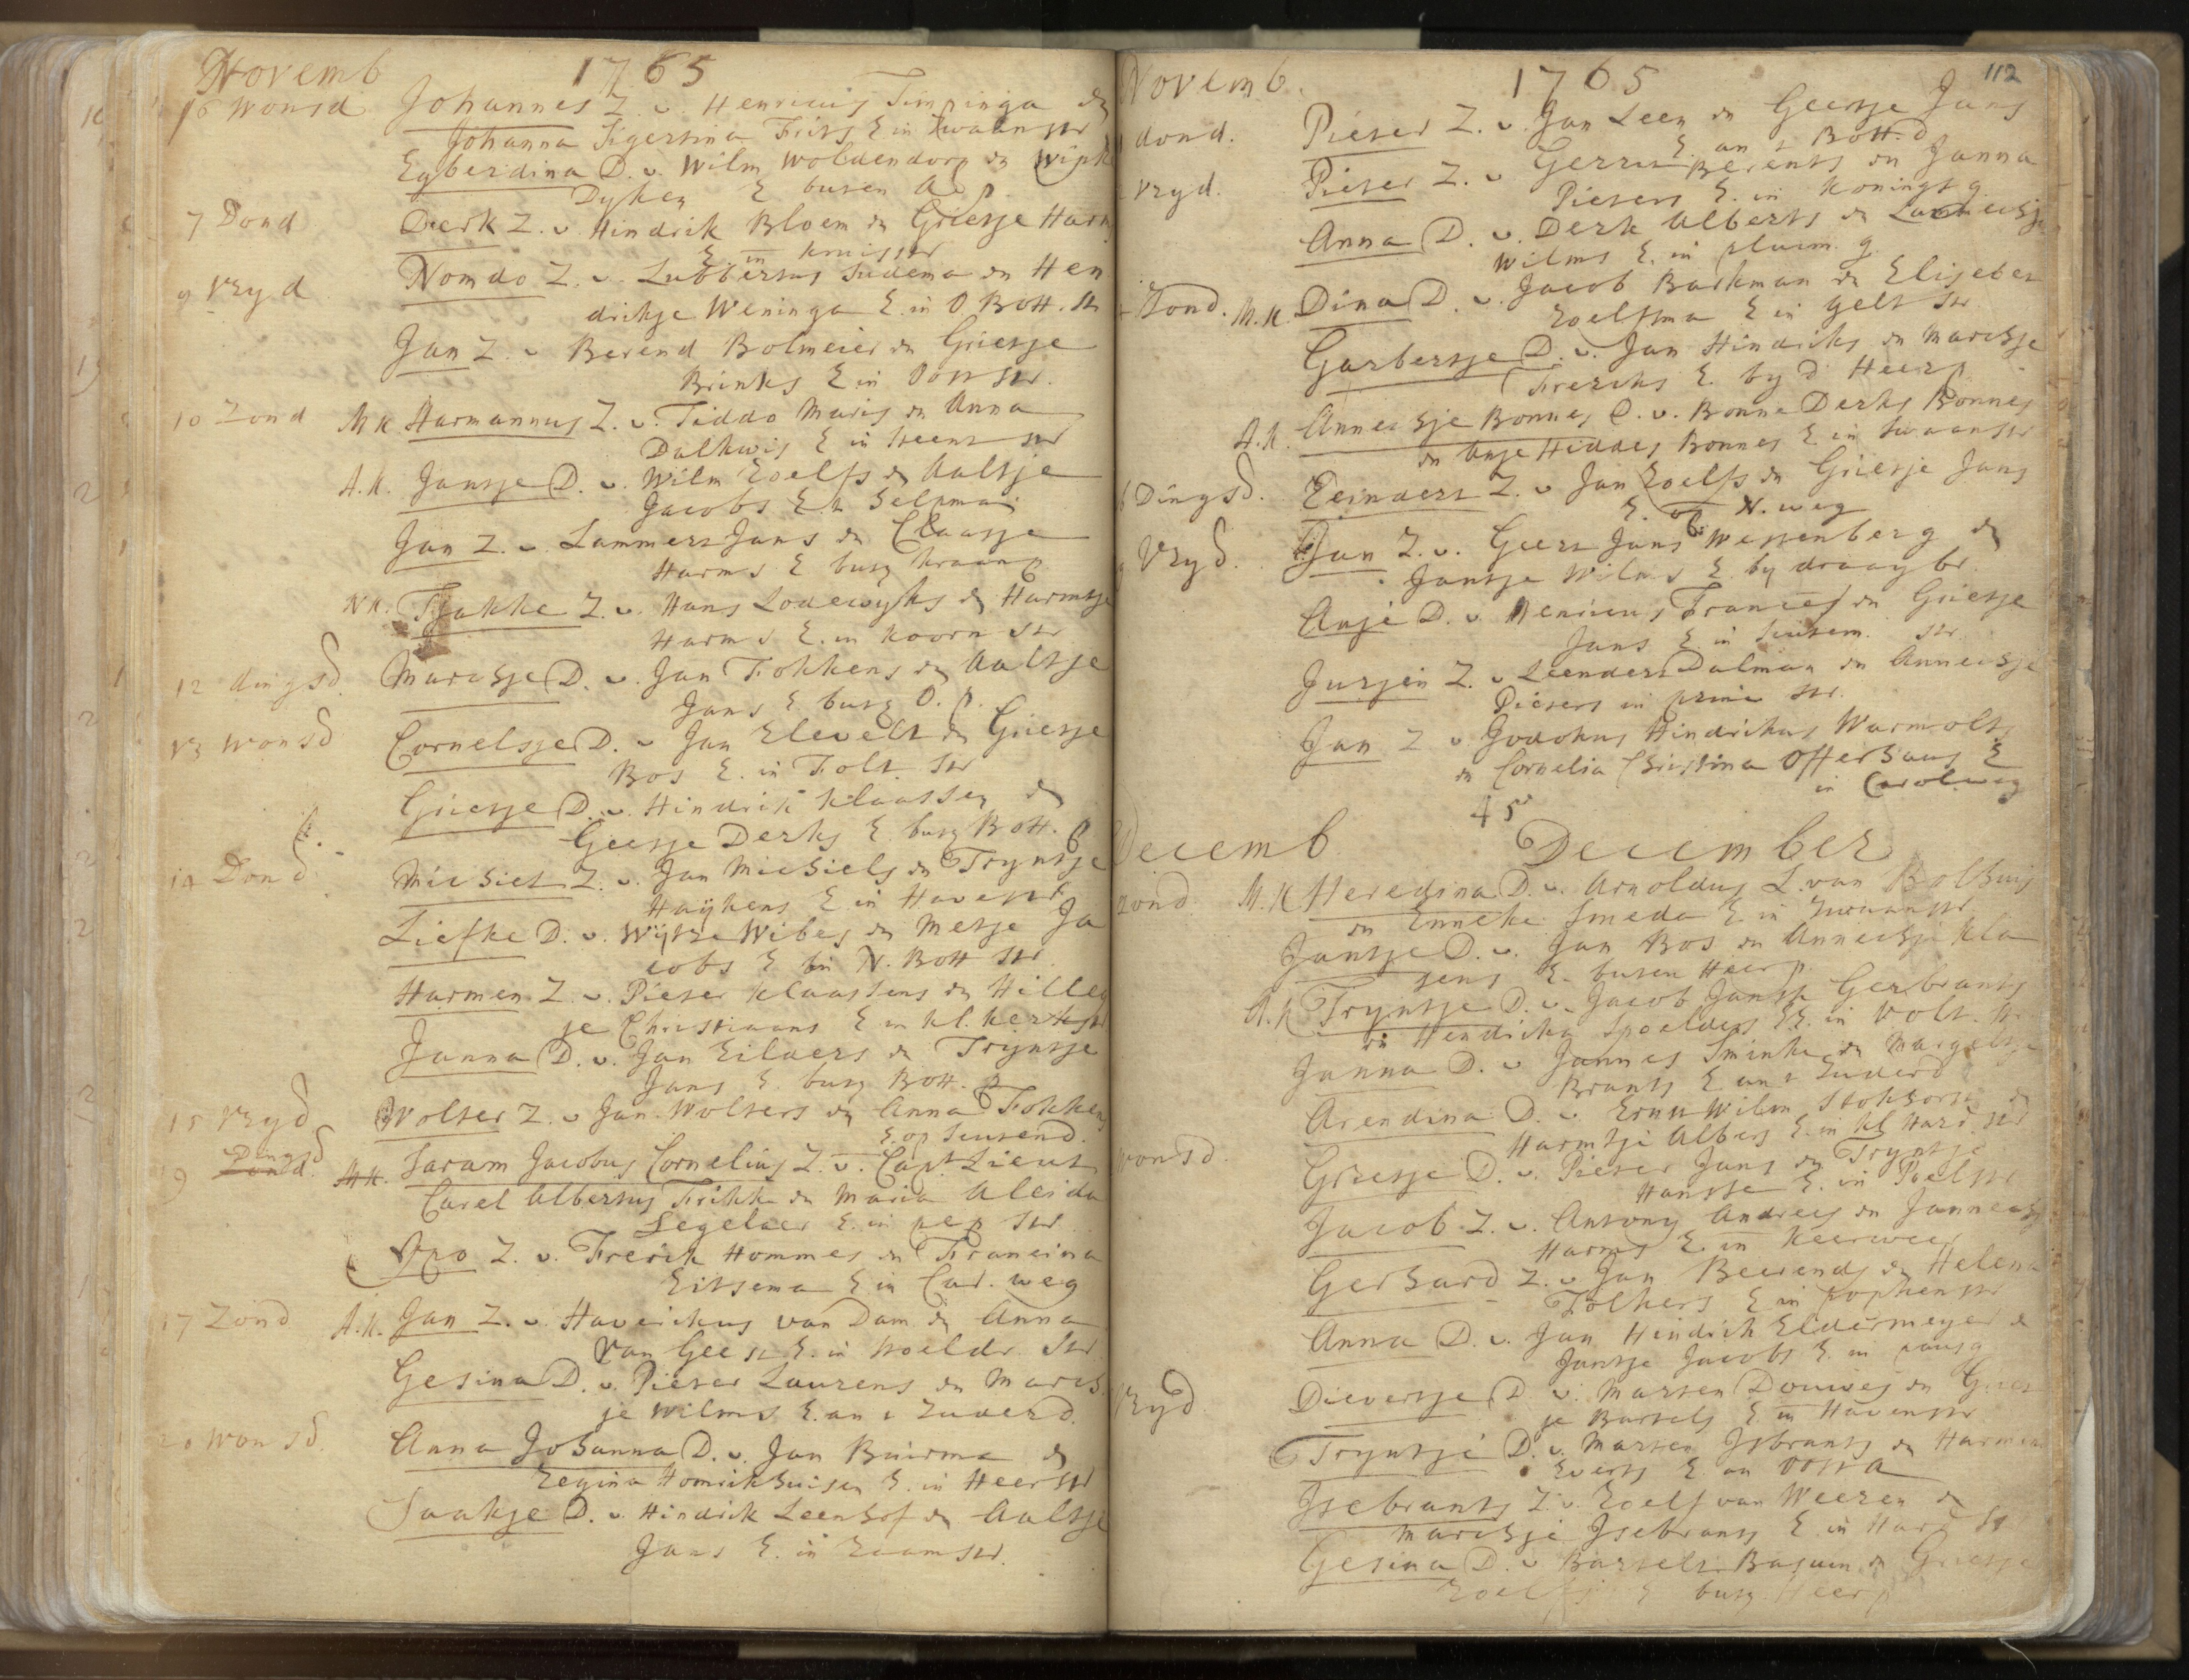 Novemb 1765
6 wonsd Johannes Z. v. Henricus Timringa en
Johanna Sigersina Frits E in Zwaanstr
Egberdina D. v. Wilm Woldendorp en Wipk
Dyken E buten A p.
7 Dond Derk Z. v Hindrik Bloem en Grietje Harm
E in kruisstr
9 Vryd Nomdo Z. v. Lubbertus Sudema en Hen
drikje Weninga E. in O. Bott. str
Jan Z. v Berend Bolmeier en Grietje
Brinks E in Oosstr.
10 Zond M K. Harmannus Z. v. Tiddo Maris en Anna
Dalkwis E in Heent str
A. K. Jantje D. v. Wilm Roelfs en Aaltje
Jacobs E t Selpma
Jan Z. v. Lammert Jans en Claasje
Harms E buts kraanp
N K. Fokke Z. v. Hans Lodewyks en Harmtje
Harms E. in Koorn str
12 dingsd. Marchje D. v. Jan Fokkens en Aaltje
Jans E. butg O. p.
13 wonsd Cornelsje D. v Jan Elevelt en Grietje
Bos E. in Folt. str
Grietje D. v. Hindrik Klaassen en
Geesje Derks E. butg Bott. p
14 Dond. Michiel Z. v. Jan Michiels en Tryntje
Haykens E in Havenstr
Liefke D. v. Wytze Wibes en Metje Ja
cobs E in N. Bott str
Harmen Z. v. Pieter Klaassens en Hilleg
je Christiaans E in kl. kerkstr
Janna D. v. Jan Eilders en Tryntje
Jans E. butg Bott. p
15 Vryd Wolter Z. v Jan Wolters en Anna Fokkens
E. op Suusend.
Dingsd
19 Zond. M K. Saram Jacobus Cornelius Z. v. Capt Lieut
Carel Albertus Frikk en Maria Aleida
Segelaer E. in pep str
Ypo Z. v. Frerik Hommes en Francina
Eitsema E in Car. weg
17 Zond A. K. Jan Z. v. Haverikus van Dam en Anna
Van Geest E. in Poeldr. Str
Gesina D. v. Pieter Laurens en March
je Wilms E. an t Zuderd.
20 wonsd. Anna Johanna D. v. Jan Buirma en
Regina Homrikhuisen E. in Heerstr
Saakje D. v. Hindrik Leenhof en Aaltje
Jans E. in Raamstr.
112
Novemb. 1765
dond. Pieter Z. v. Jan Leen en Geertje Jans
E. an t Bott. d
vryd. Pieter Z. v Gerrit Berents en Janna
Pieters E. in Konings g.
Anna D. v. Derk Alberts en
Wilms E. in pluim. g.
Zond. M. K. Dina D. v. Jacob Barkman en Elisebet
Roelfsma E in gelt str.
Garbertje D. v. Jan Hindriks en Marchje
Freriks E. by d Heerp
A. K. Annechje Bonnes D. v. Bonne Derks Bonnes
en Anje Hiddes Bonnes E. in Swaanstr
Dingsd. Reindert Z. v Jan Roelfs en Grietje Jans
E. op N. weg
Vryd. Jan Z. v. Geert Jans Westenberg en
Jantje Wilms E. by draay br.
Anje D. v Henricus Frances en Grietje
Jans E in Suusem. str.
Jurjen Z. v Leendert Dalman en Annechje
Pieters in prins str.
Jan Z v Jodokus Hindrikus Warmolts
en Cornelia Christina Offerhaus E
in Carolweg
45
Decemb December
Zond. M. K Heredina D. v. Arnoldus L. van Bolhuis
en Enneke Smeda E. in Zwaanstr
Jantje D. v. Jan Bos en Annechje Kla
sens E. buten Heerp.
A. K Tryntje D. v. Jacob Jansse Gerbrants
en Hendrika Spoelders E. in Volt. str
Janna D. v Jannes Smink en Margeltje
Brants E an t Zuderd
Arendina D. v. Ernst Wilm Stokhorst en
Harmtje Albers E. in kl Hard. str
wonsd. Grietje D. v. Pieter Jans en Tryntje
Hansse E. in Poelstr
Jacob Z. v. Antony Andrees en Jannechj
Harms E. in Keerweer
Gerhard Z. v. Jan Beerends en Helena
Folkers E in popkenstr
Anna D. v. Jan Hindrik Eldermeyer en
Jantje Jacobs E. in pausg
Vryd Dievertje D v. Marten Douwes en Griet
je Bartels E. in Havenstr
Tryntje D. v. Marten Isbrants en Harmen
Everts E. an Oosta
Isebrants Z. v. Roelf van Weeren en
Marchje Isebrants E. in Hard St
Gesina D. v. Bartelt Basuin en Grietje
Roelfs E butg Heerp